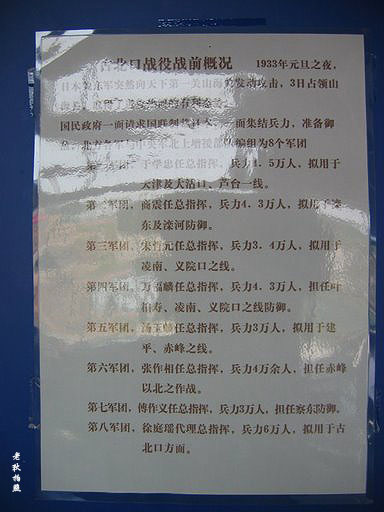 古北口战役战前概况 1933年元旦之夜，
日本关东军突然向天下第一关山海关发动攻击，3日占领山
国民政府一面请求国联制裁日本，一面集结兵力，准备御
军北上增援部队编组为8个军团
第一军团，于学忠任总指挥，兵力4.5万人，拟用于
天津及大沽口、芦台一线。
第二军团，商震任总指挥，兵力4.3万人，拟用于滦
东及滦河防御。
第三军团，宋哲元任总指挥，兵力3.4万人，拟用于
凌南、义院口之线。
第四军团，万福麟任总指挥，兵力4.3万人，担任叶
柏寿、凌南、义院口之线防御。
第五军团，汤玉麟任总指挥，兵力3万人，拟用于建
平、赤峰之线。
第六军团，张作相任总指挥，兵力4万余人，担任赤峰
以北之作战。
第七军团，傅作义任总指挥，兵力3万人，担任察东防御。
第八军团，徐庭瑶代理总指挥，兵力6万人，拟用于古
北口方面。
老狄拍摄